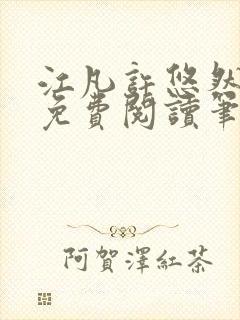 江凡許悠然
免費閱讀筆
阿賀澤紅茶